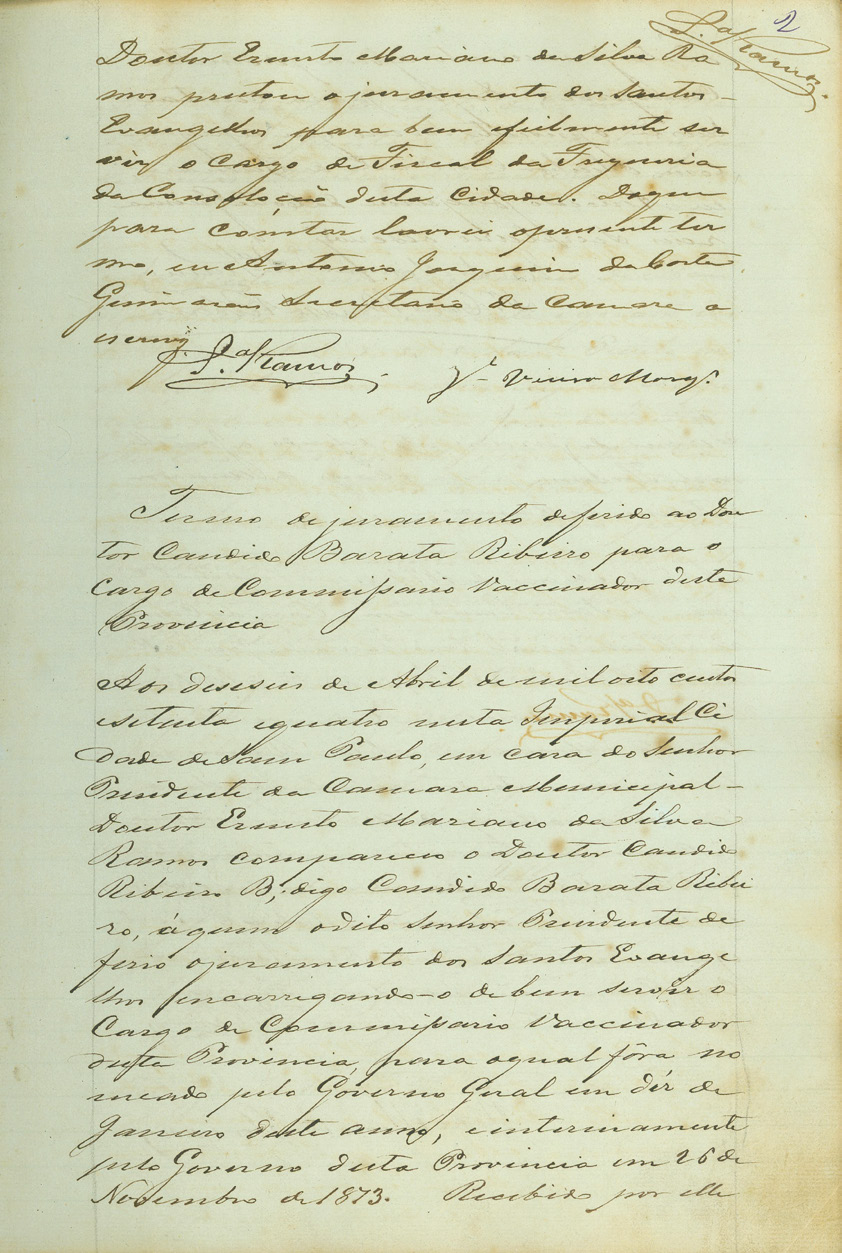 2
S.ª Ramos.
Doutor Ernesto Mariano da Silva Ra
mos prestou o juramento dos Santos
Evangelhos para bem e fielmente ser
vir o cargo de Fiscal da Freguesia
da Consolação desta Cidade. Do que
para constar lavrei o presente ter
mo, eu Antonio Joaquim da Costa
Guimarães Secretario da Camara o
escrevi.
S.ª Ramos
Vieira
Termo de juramento deferido ao Dou
tor Candido Barata Ribeiro para o
cargo de Commissario Vaccinador deste
Provincia
Aos deseseis de Abril de mil oito centos
e setenta e quatro nesta Imperial Ci
dade de Sam Paulo, em casa do Senhor
Presidente da Camara Municipal
Doutor Ernesto Mariano da Silva
Ramos compareceo o Doutor Candido
Ribeiro B; digo Candido Barata Ribei
ro, á quem o dito Senhor Presidente de
ferio o juramento dos Santos Evange
lhos encarregando-o de bem servir o
Cargo de Commissario Vaccinador
desta Provincia, para o qual fôra no
meado pelo Governo Geral em déz de
Janeiro deste anno, e interinamente
pelo Governo desta Provincia em 26 de
Novembro de 1873. Recebido por elle